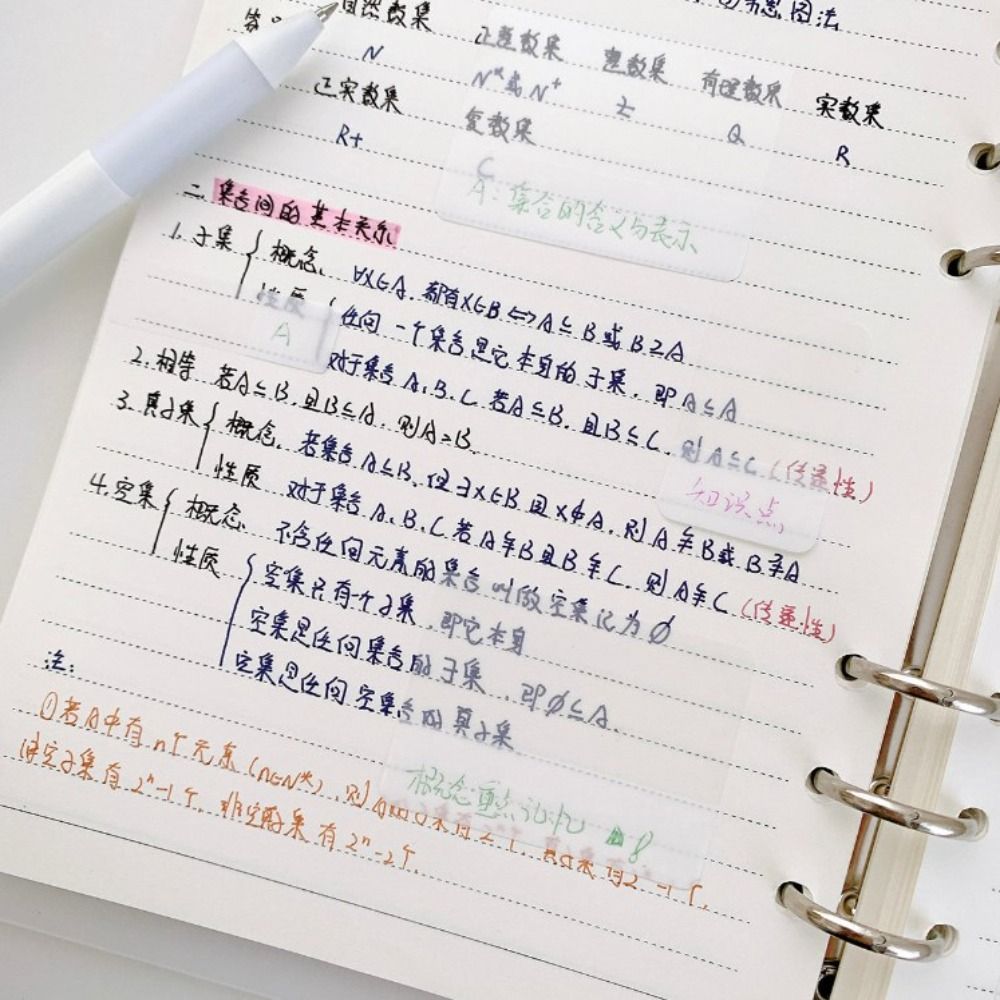 韦恩图法
答: 自然数集 正整数集 整数集 有理数集 实数集
N N*或N⁺ Z Q R
正实数集 复数集
R+ C
A:集合的含义与表示
二.集合间的基本关系
1.子集 概念. ∀x∈A.都有x∈B⇔A⊆B或B⊇A
性质 任何一个集合是它本身的子集.即A⊆A
A 对于集合A.B.C.若A⊆B.且B⊆C.则A⊆C(传递性)
2.相等 若A⊆B.且B⊆A.则A=B.
3.真子集 概念.若集合A⊆B.但∃x∈B且x∉A.则A⫋B或B⫌A
知识点
性质 对于集合A.B.C若A⫋B且B⫋C.则A⫋C(传递性)
4.空集 概念.不含任何元素的集合叫做空集记为∅
性质 空集只有个子集.即它本身
空集是任何集合的子集.即∅⊆A.
空集是任何空集合的真子集
注:
概念重点记忆 8
①若A中有n个元素(n∈N*).则A的子集有2ⁿ个.真子集有2ⁿ-1个.
非空子集有2ⁿ-1个.非空真集有2ⁿ-2个.